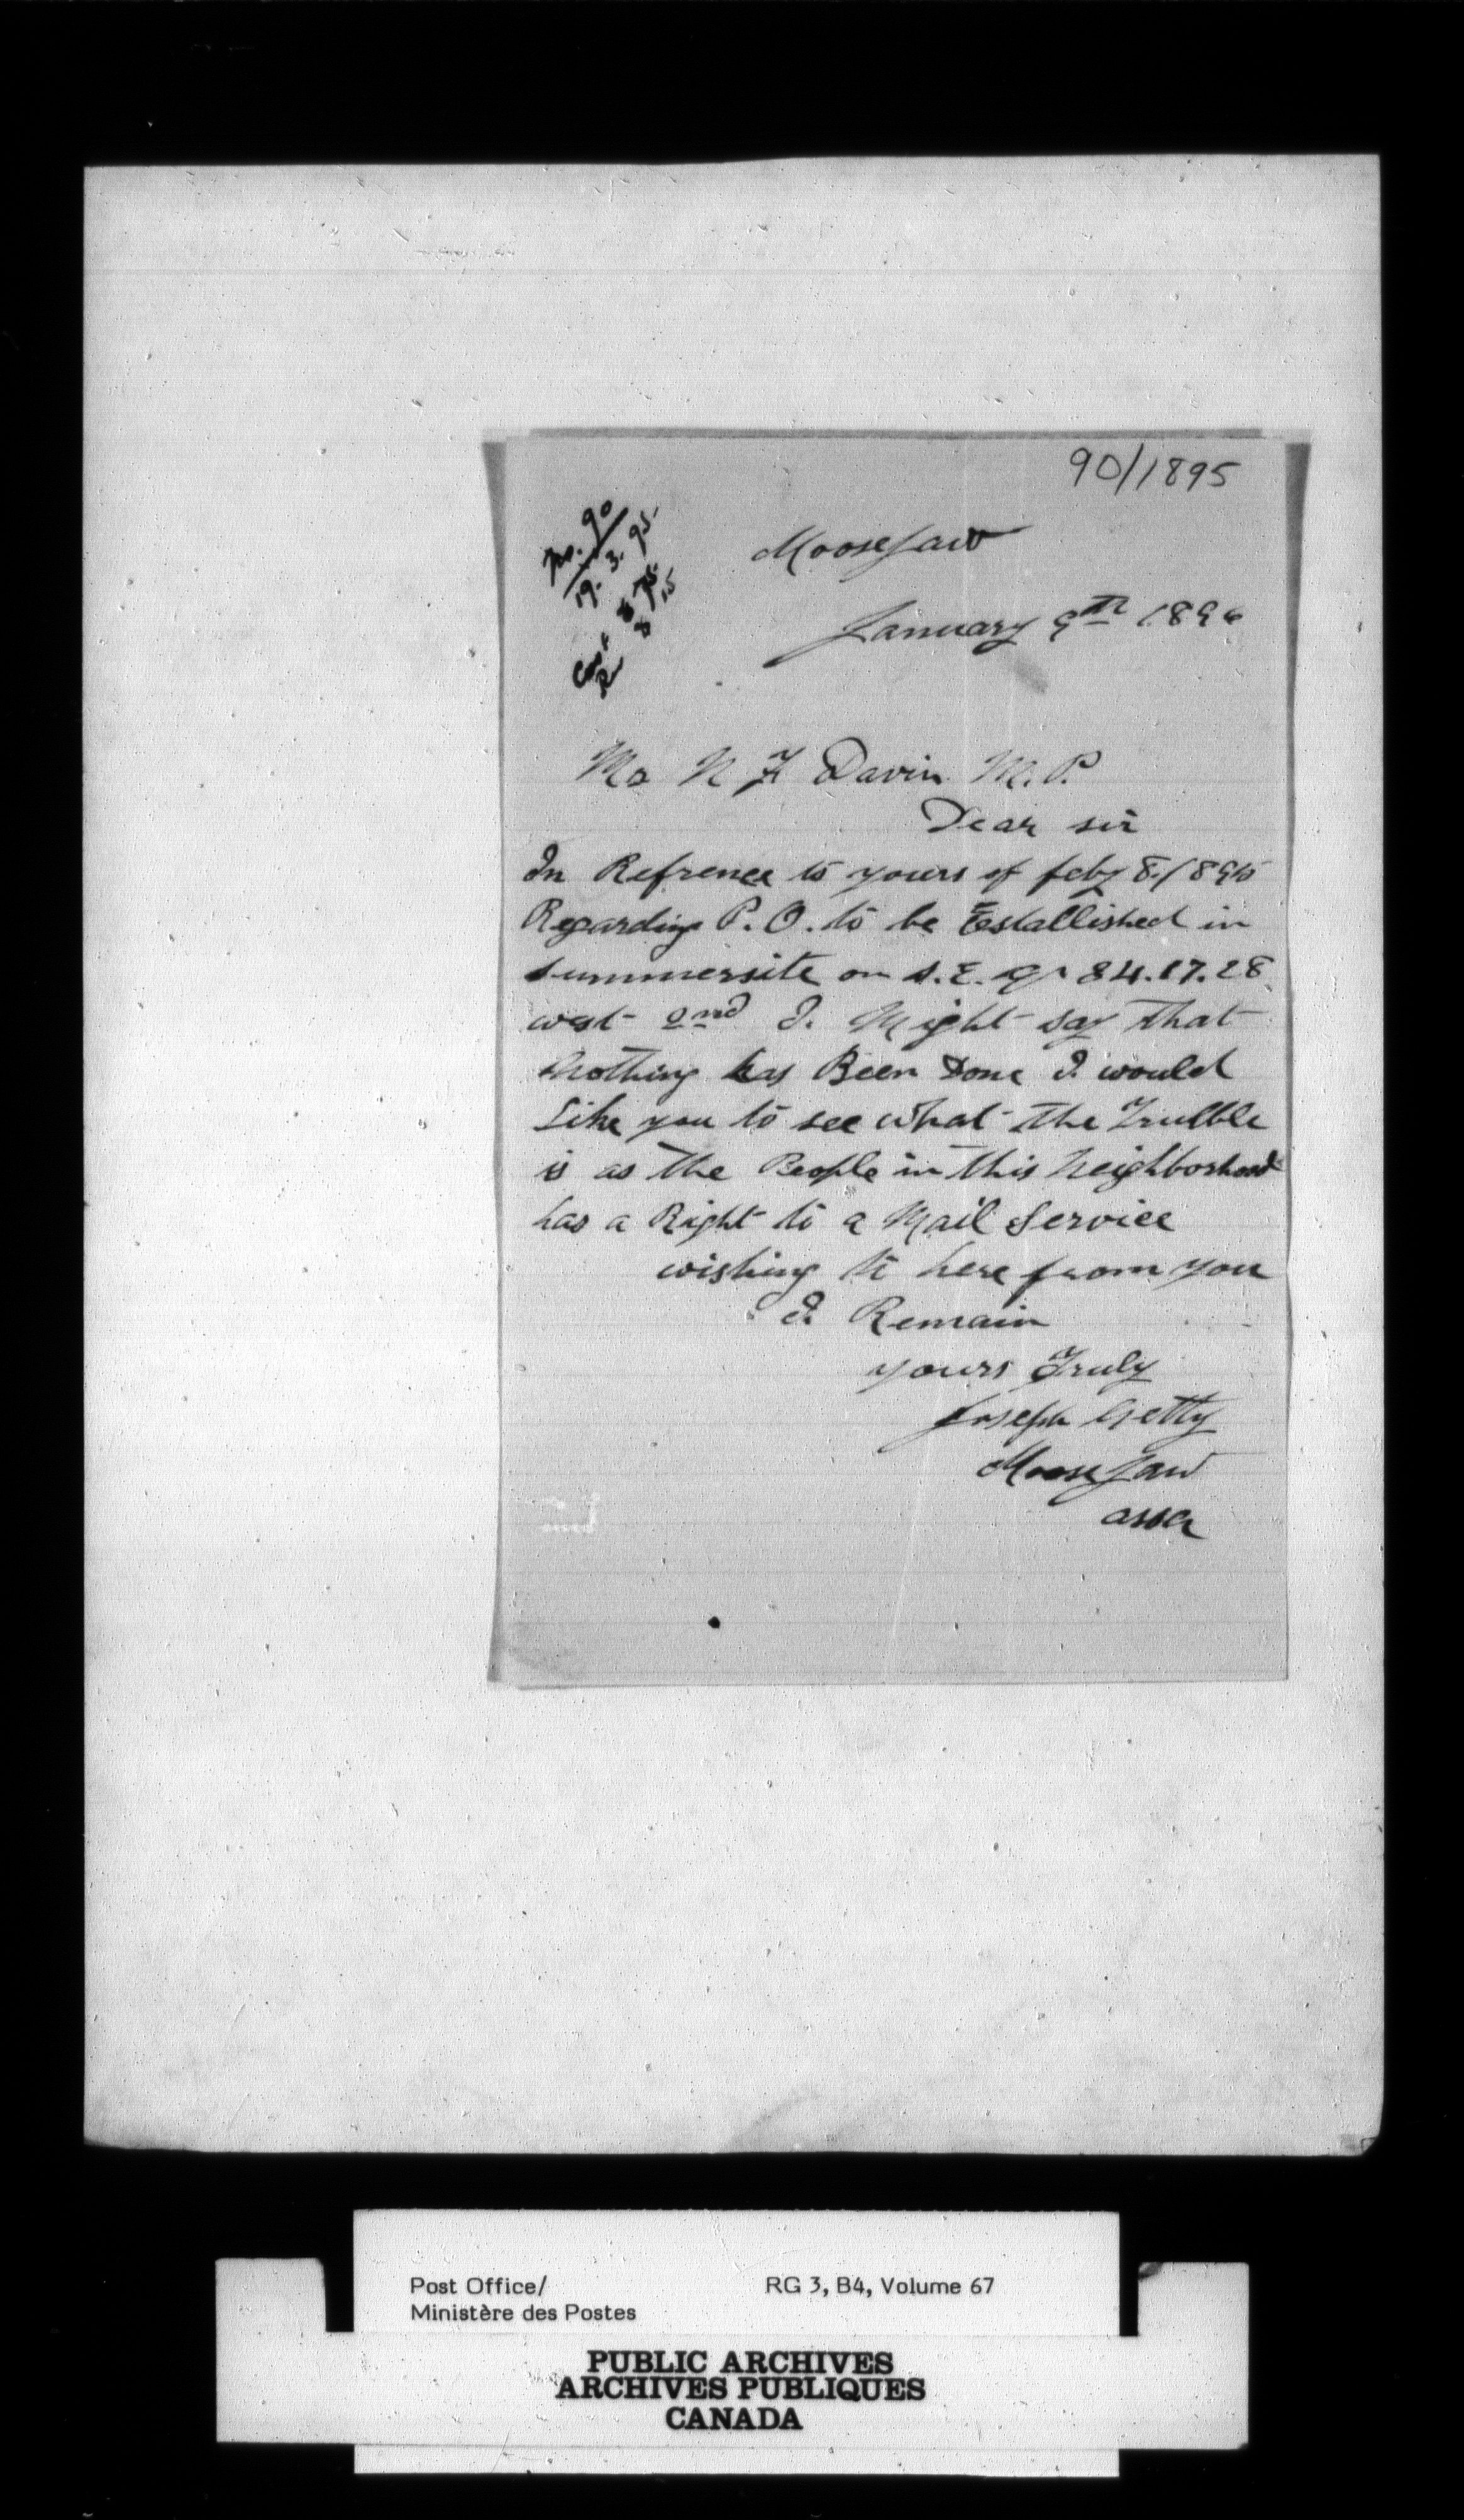 90/1895
No. 90
19. 3. 95.
Moosejaw
January 9th 1896
Mr N F Davin M.P.
Dear sir
In Refrence to yours of feby 8/1895
Regarding P. O. to be Established in
summersite on S.E. qr 34.17.28
west 2nd I. Might say that
Nothing has Been Done I would
Like you to see what the Trubble
is as the People in this Neighborhood
has a Right to a Mail Service
wishing to here from you
I Remain
yours Truly
Joseph Getty
Moose Jaw
assa
Post Office/
Ministère des Postes
RG 3, B4, Volume 67
PUBLIC ARCHIVES
ARCHIVES PUBLIQUES
CANADA